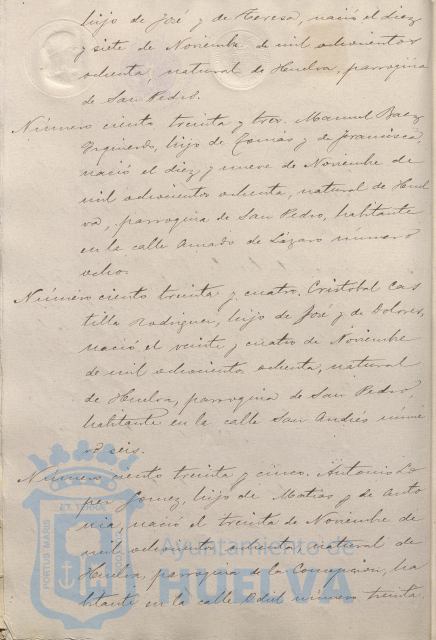 hijo de José y de Teresa, nació el diez
y siete de Noviembre de mil ochocientos
ochenta natural de Huelva, parroquia
de San Pedro.
Número ciento treinta y tres. Manuel Baez
Izquierdo, hijo de Tomás y de Francisca
nació el diez y nueve de Noviembre de
mil ochocientos ochenta, natural de Huel
va, parroquia de San Pedro, habitante
en la calle Amado de Lázaro número
ocho.
Número ciento treinta y cuatro. Cristobal Cas
tilla Rodriguez, hijo de José y de Dolores,
nació el veinte y cuatro de Noviembre
de mil ochocientos ochenta, natural
de Huelva, parroquia de San Pedro,
habitante en la calle San Andrés núme
ro seis.
Número ciento treinta y cinco. Antonio Lo
pez Gomez, hijo de Matias y de Anto
nia, nació el treinta de Noviembre de
mil ochocientos ochenta, natural de
Huelva, parroquia de la Concepcion, ha
bitante en la calle Odiel número treinta,
PORTUS MARIS
ET TERRÆ
CUSTODIA
Ayuntamiento de
HUELVA